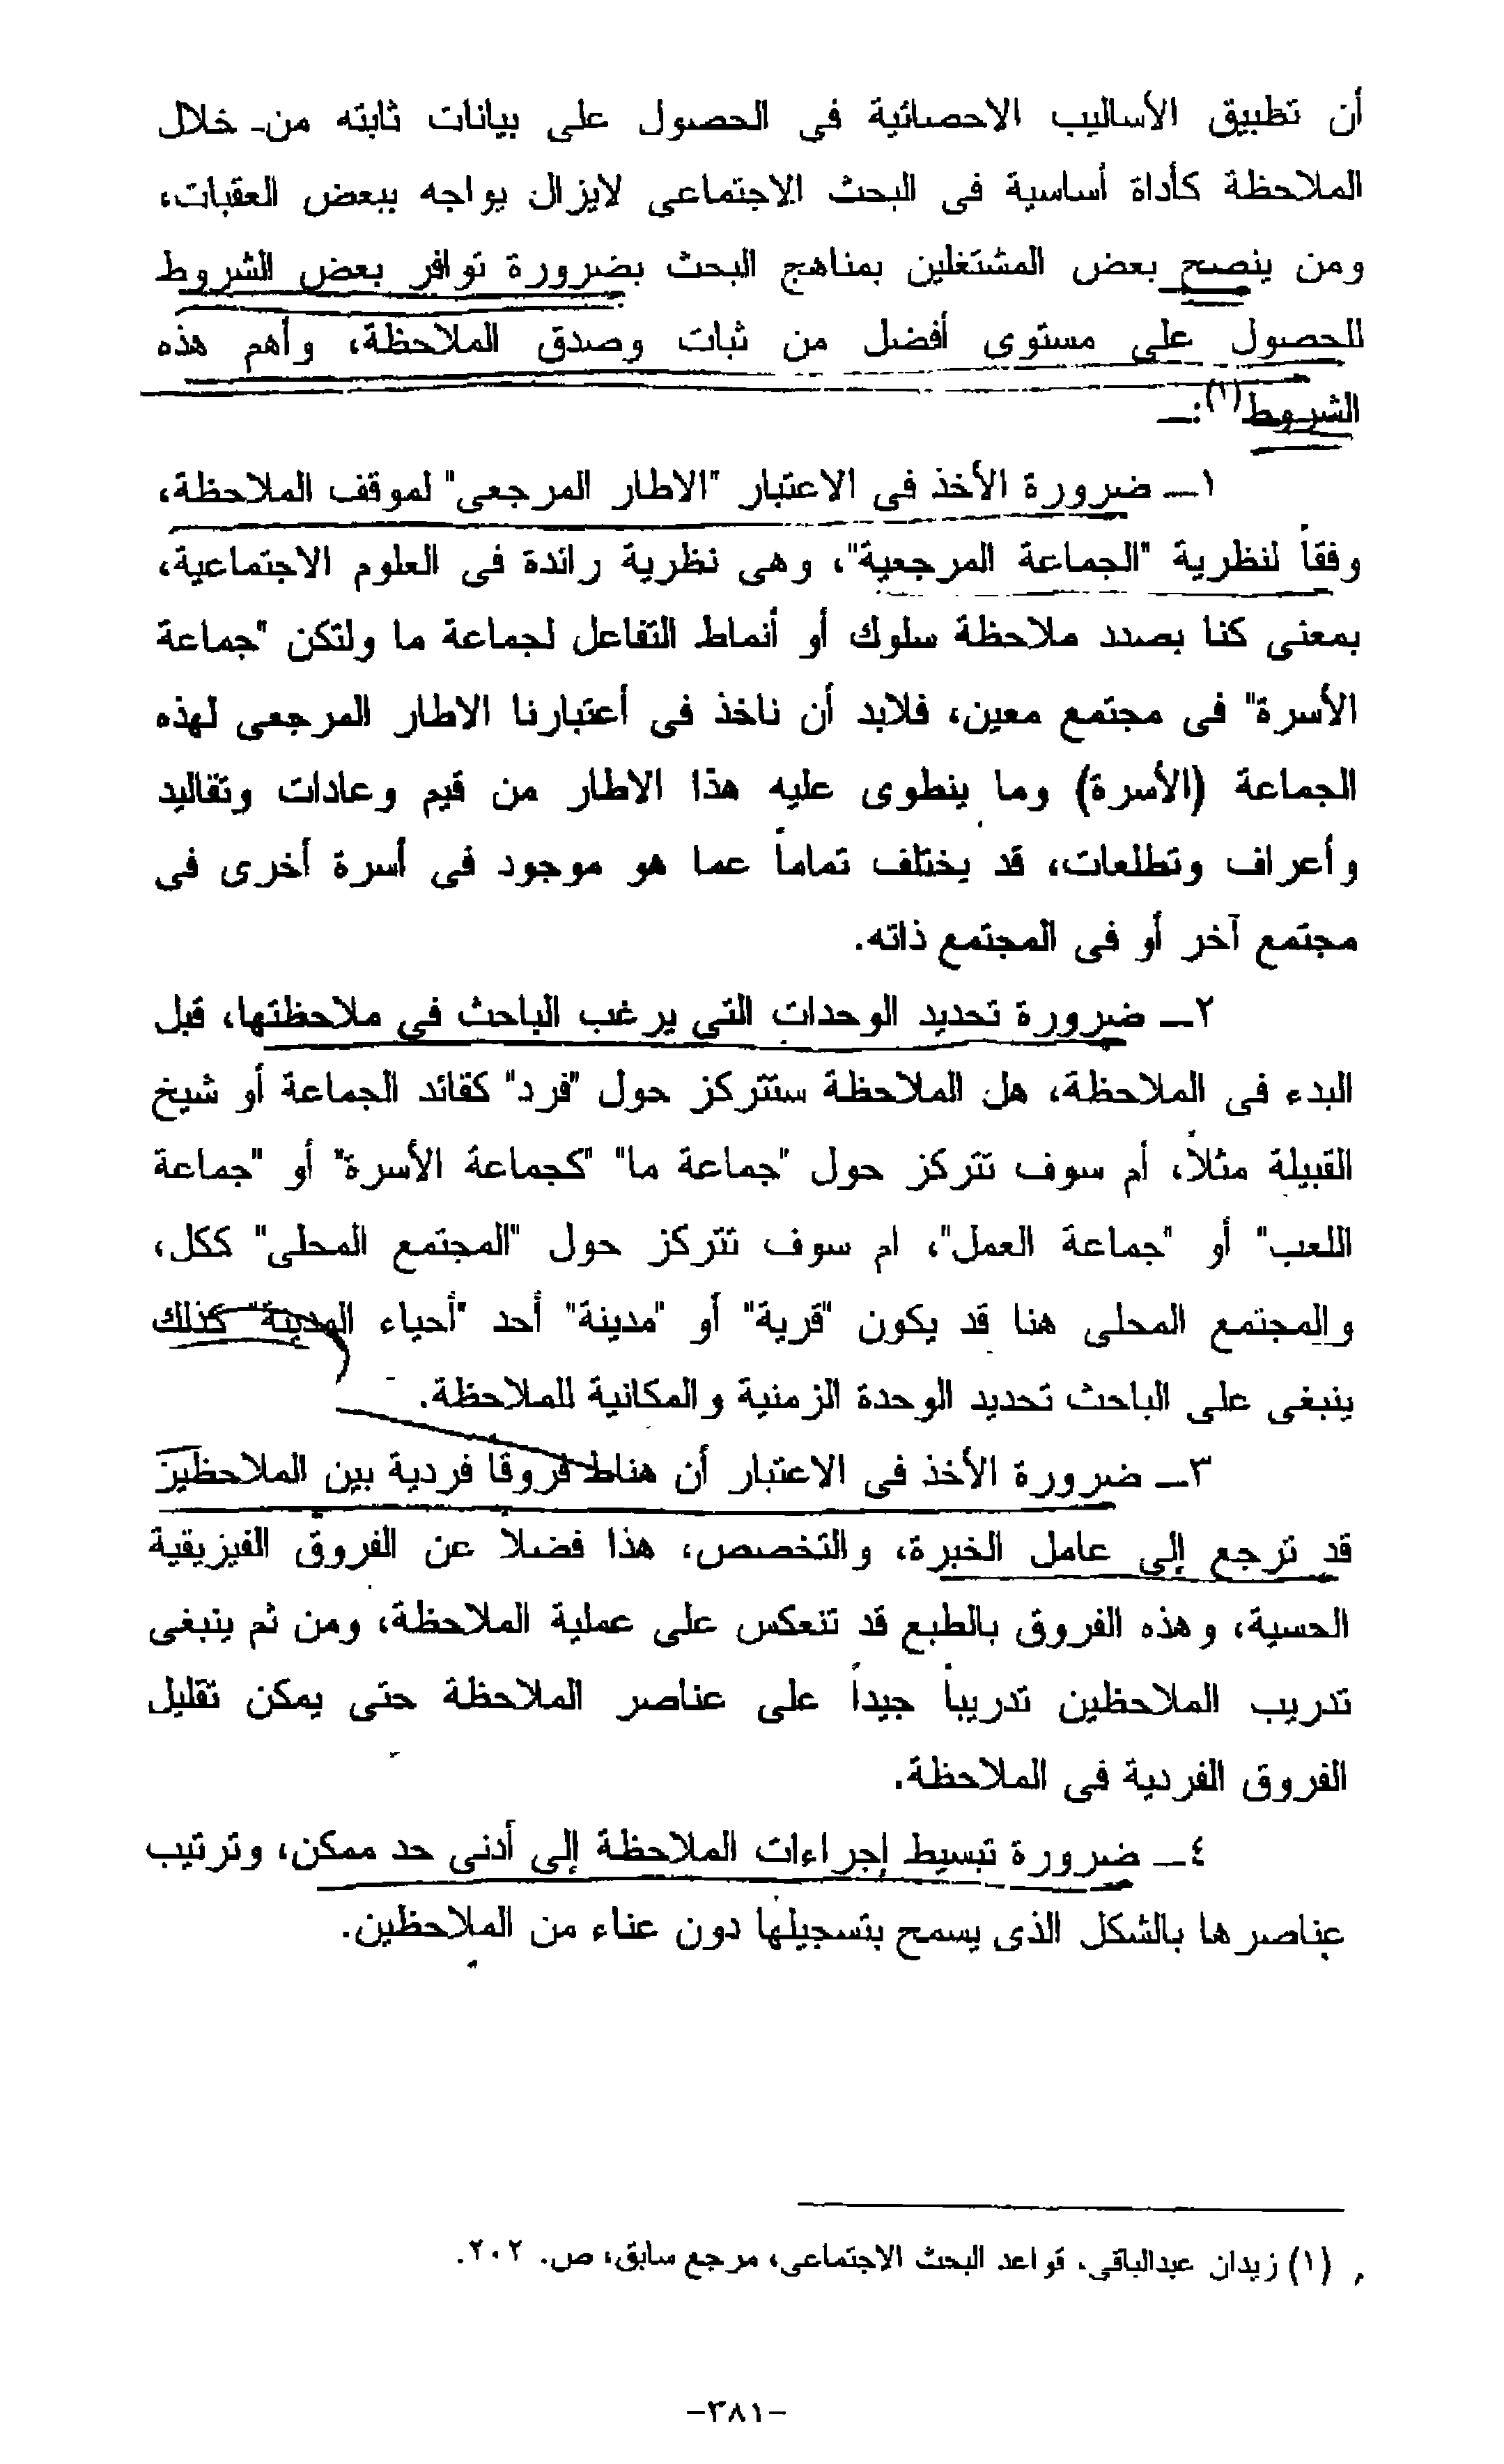 أن تطبيق الأساليب الاحصائية فى الحصول على بيانات ثابته من خلال
الملاحظة كأداة أساسية فى البحث الاجتماعى لايزال يواجه ببعض العقبات،
ومن ينصح بعض المشتغلين بمناهج البحث بضرورة توافر بعض الشروط
للحصول على مستوى أفضل من ثبات وصدق الملاحظة، وأهم هذه
الشروط(١):ـ
١ـ ضرورة الأخذ فى الاعتبار "الاطار المرجعى" لموقف الملاحظة،
وفقاً لنظرية "الجماعة المرجعية"، وهى نظرية رائدة فى العلوم الاجتماعية،
بمعنى كنا بصدد ملاحظة سلوك أو أنماط التفاعل لجماعة ما ولتكن "جماعة
الأسرة" فى مجتمع معين، فلابد أن ناخذ فى أعتبارنا الاطار المرجعى لهذه
الجماعة (الأسرة) وما ينطوى عليه هذا الاطار من قيم وعادات وتقاليد
وأعراف وتطلعات، قد يختلف تماماً عما هو موجود فى أسرة أخرى فى
مجتمع آخر أو فى المجتمع ذاته.
٢ـ ضرورة تحديد الوحدات التى يرغب الباحث فى ملاحظتها، قبل
البدء فى الملاحظة، هل الملاحظة ستتركز حول "فرد" كقائد الجماعة أو شيخ
القبيلة مثلاً، أم سوف تتركز حول "جماعة ما" "كجماعة الأسرة" أو "جماعة
اللعب" أو "جماعة العمل"، ام سوف تتركز حول "المجتمع المحلى" ككل،
والمجتمع المحلى هنا قد يكون "قرية" أو "مدينة" أحد "أحياء المدينة" كذلك
ينبغى على الباحث تحديد الوحدة الزمنية والمكانية للملاحظة.
٣ـ ضرورة الأخذ فى الاعتبار أن هناك فروقا فردية بين الملاحظين
قد ترجع إلى عامل الخبرة، والتخصص، هذا فضلاً عن الفروق الفيزيقية
الحسية، وهذه الفروق بالطبع قد تنعكس على عملية الملاحظة، ومن ثم ينبغى
تدريب الملاحظين تدريباً جيداً على عناصر الملاحظة حتى يمكن تقليل
الفروق الفردية فى الملاحظة.
٤ـ ضرورة تبسيط إجراءات الملاحظة إلى أدنى حد ممكن، وترتيب
عناصرها بالشكل الذى يسمح بتسجيلها دون عناء من الملاحظين.
(١) زيدان عبدالباقى، قواعد البحث الاجتماعى، مرجع سابق، ص. ٢٠٢.
-٣٨١-